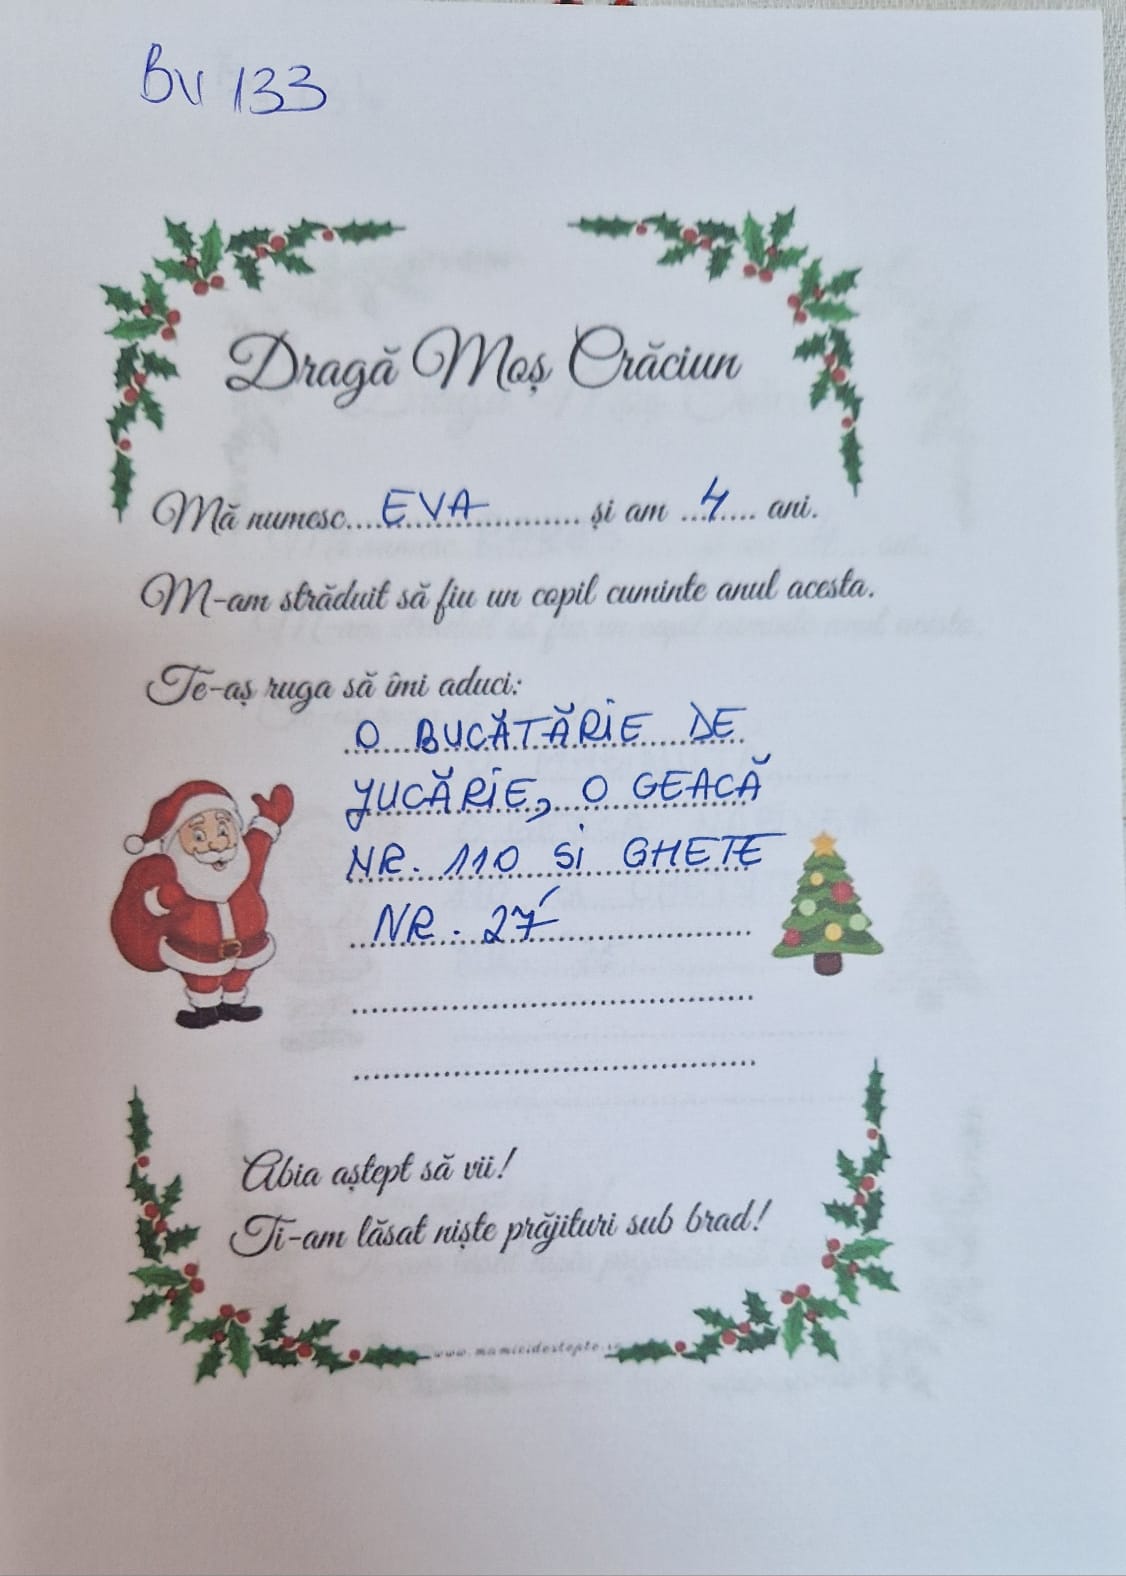 BV 133
Dragă Moș Crăciun
Mă numesc....EVA.............. și am ...4.... ani.
M-am străduit să fiu un copil cuminte anul acesta.
Te-aș ruga să îmi aduci:
O BUCĂTĂRIE DE
JUCĂRIE, O GEACĂ
NR. 110 SI GHETE
NR. 27
Abia aștept să vii!
Ti-am lăsat niște prăjituri sub brad!